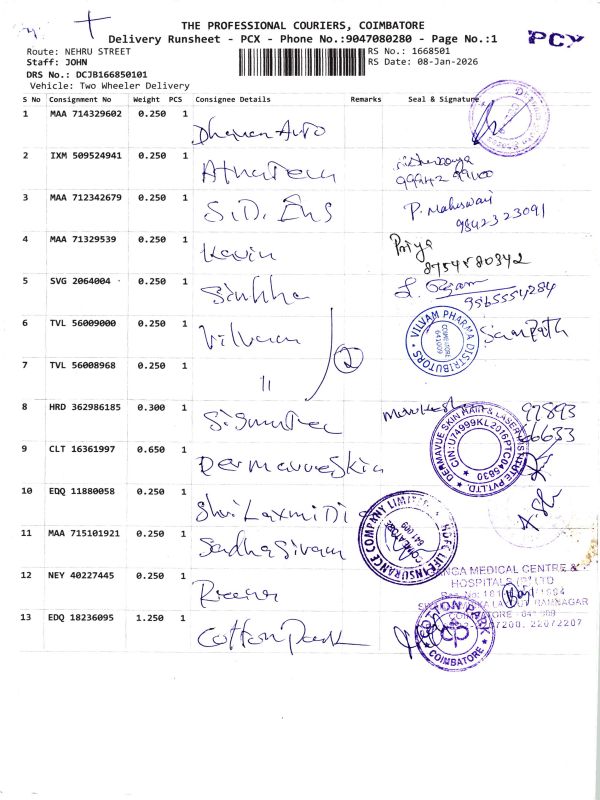 THE PROFESSIONAL COURIERS, COIMBATORE
Delivery Runsheet - PCX - Phone No.:9047080280 - Page No.:1
PCX
Route: NEHRU STREET
RS No.: 1668501
Staff: JOHN
RS Date: 08-Jan-2026
DRS No.: DCJB166850101
Vehicle: Two Wheeler Delivery
S No Consignment No Weight PCS Consignee Details Remarks Seal & Signature
1 MAA 714329602 0.250 1 Auto
2 IXM 509524941 0.250 1
99942 99100
3 MAA 712342679 0.250 1 S.D. Eng P. Maheswari
9842323091
4 MAA 71329539 0.250 1 Kavin Priya
8754880342
5 SVG 2064004 0.250 1 Sinhha
9565554284
6 TVL 56009000 0.250 1 Vilvam
VILVAM PHARMA DISTRIBUTORS
COIMBATORE
641009
Sampath
7 TVL 56008968 0.250 1 "
2
8 HRD 362986185 0.300 1
97893
66633
9 CLT 16361997 0.650 1 Dermavueskin
DERMAVUE SKIN HAIR & LASER INSTITUTE PVT LTD
CIN:U74999KL2016PTC045830
10 EDQ 11880058 0.250 1 Shri Laxmi Di
HDFC LIFE INSURANCE COMPANY LIMITED
COIMBATORE
641009
11 MAA 715101921 0.250 1 Sadhasivam
12 NEY 40227445 0.250 1
MEDICAL CENTRE &
HOSPITALS (P) LTD
RAMNAGAR
2207207
13 EDQ 18236095 1.250 1 Cotton Park
COTTON PARK
CP
COIMBATORE